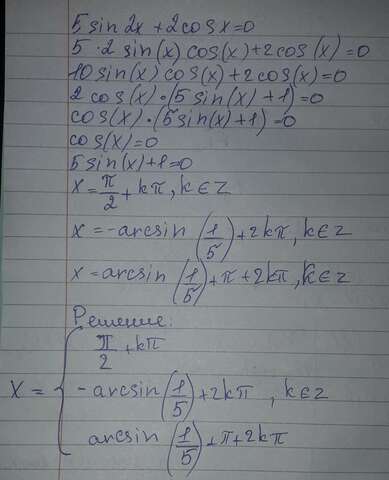 5 sin 2x + 2 cos x = 0
5 · 2 sin(x) cos(x) + 2 cos(x) = 0
10 sin(x) cos(x) + 2 cos(x) = 0
2 cos(x) · (5 sin(x) + 1) = 0
cos(x) · (5 sin(x) + 1) = 0
cos(x) = 0
5 sin(x) + 1 = 0
x = π/2 + kπ, k ∈ Z
x = -arcsin (1/5) + 2kπ, k ∈ Z
x = arcsin (1/5) + π + 2kπ, k ∈ Z
Решение:
π/2 + kπ
x = { - arcsin (1/5) + 2kπ , k ∈ Z
arcsin (1/5) + π + 2kπ